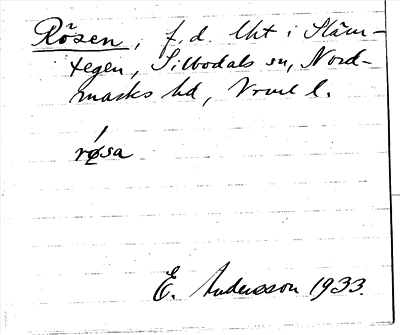 Rösen, f.d. lht i Släm-
tegen, Silbodals sn, Nord-
marks hd, Vrml l.
røsa
E. Andersson 1933.